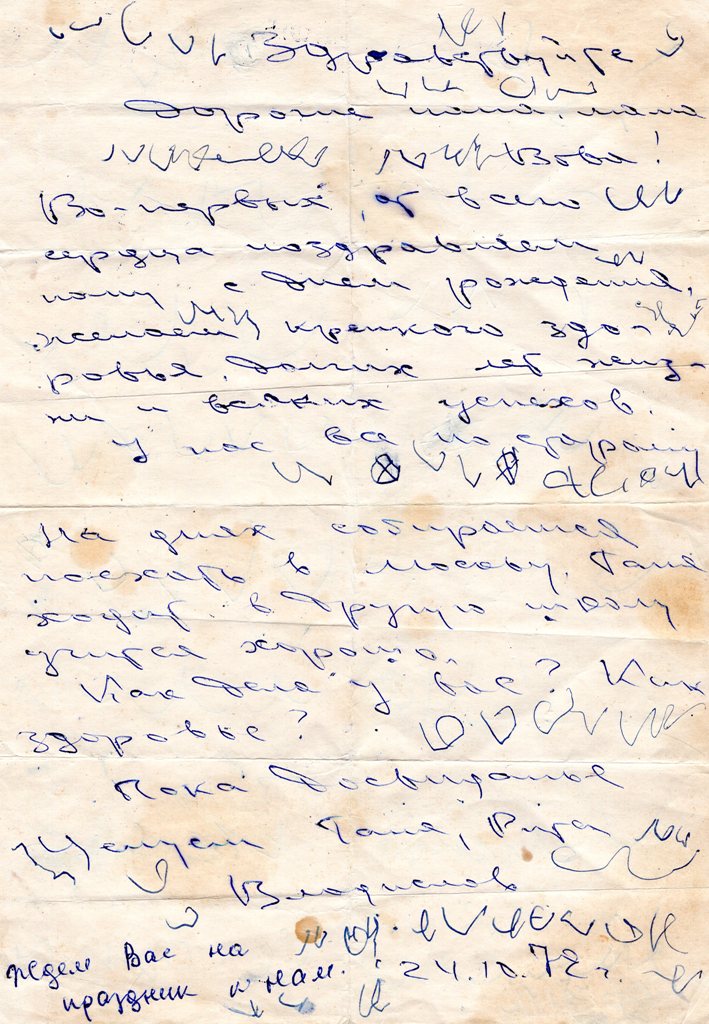 Здравствуйте
Дорогие папа, мама
Вова!
Во-первых, от всего
сердца поздравляем
папу с днем рождения,
желаем крепкого здо-
ровья, долгих лет жиз-
ни и всяких успехов.
У нас все по старому
На днях собираемся
поехать в Москву. Таня
ходит в другую школу
учится хорошо.
Как дела у вас? Как
здоровье?
Пока Досвиданья
Целуем Таня, Рита
Владислав
24.10.72 г.
Ждем Вас на
праздник к нам.